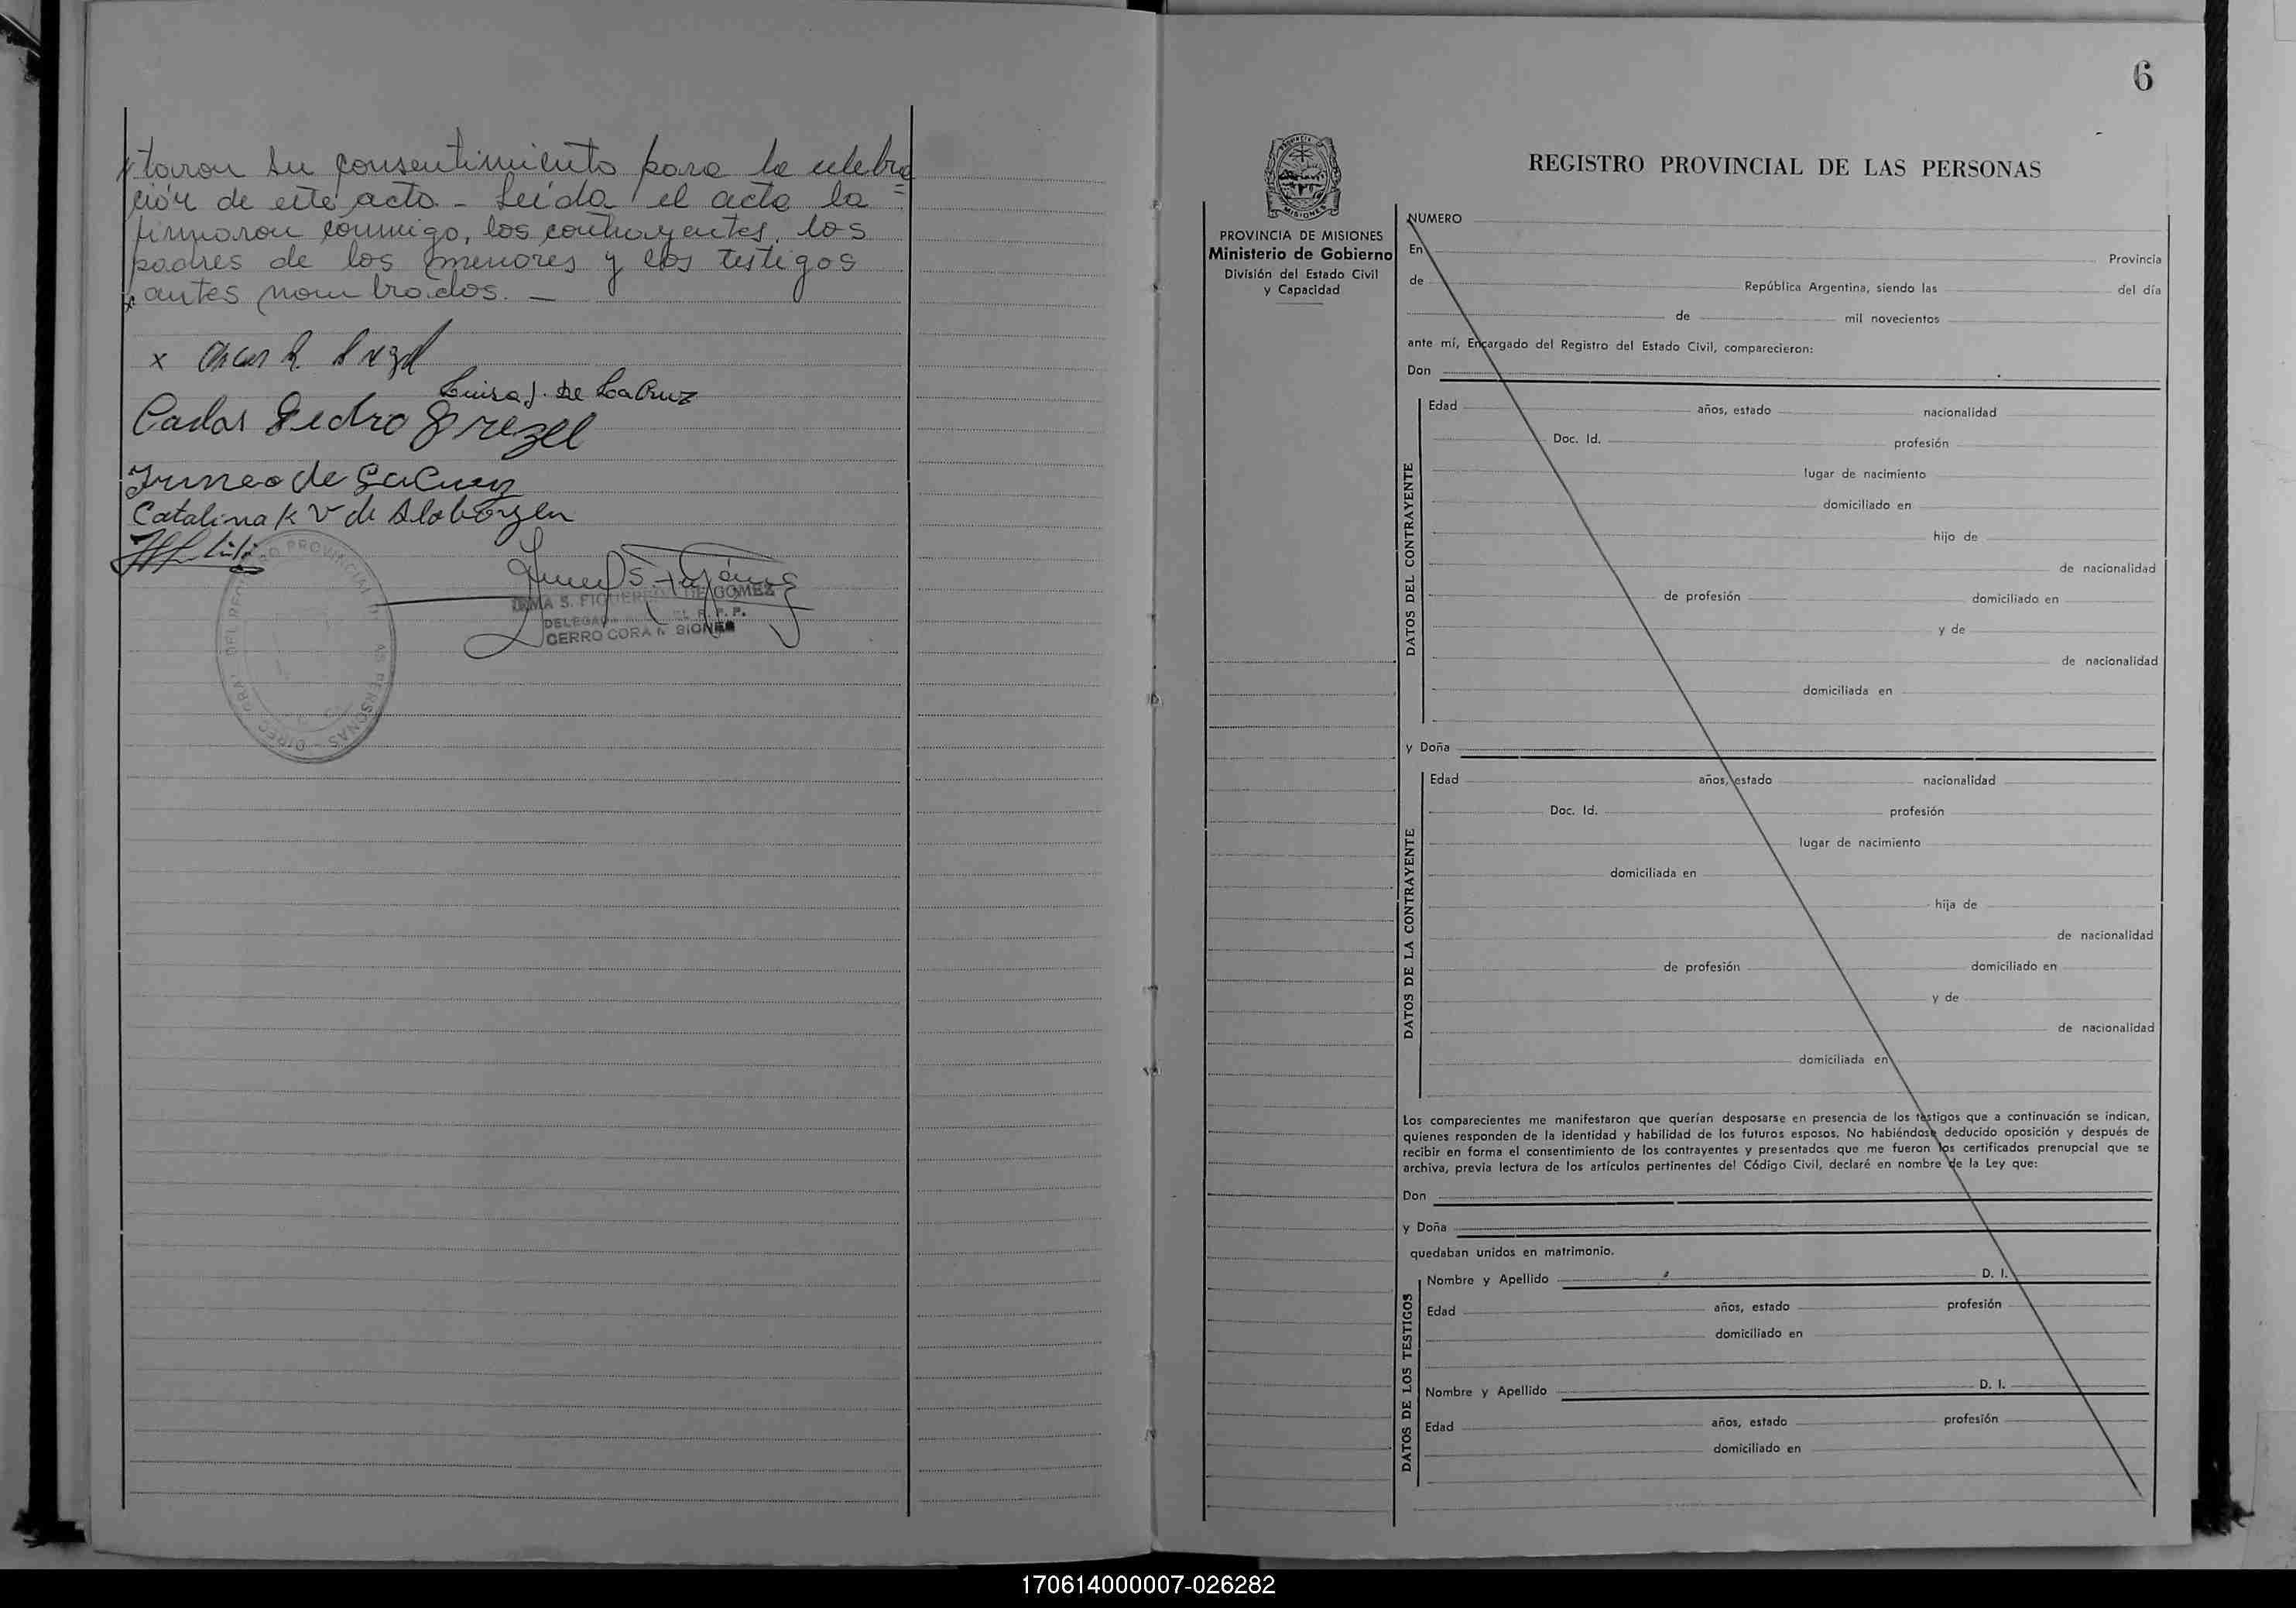 taron su consentimiento para la celebra
ción de este acto - Leída el acta la
firmaron conmigo, los contrayentes, los
padres de los menores y los testigos
antes nombrados. -
x
Luisa J. De La Cruz
Carlos Pedro Grezel
de La Cruz
Catalina K V de
IRMA S. FIGUEREDO DE GOMEZ
DELEGADA R. P. P.
CERRO CORA MISIONES
6
MISIONES
PROVINCIA DE MISIONES
Ministerio de Gobierno
División del Estado Civil
y Capacidad
REGISTRO PROVINCIAL DE LAS PERSONAS
NUMERO
En Provincia
de República Argentina, siendo las del día
de mil novecientos
ante mí, Encargado del Registro del Estado Civil, comparecieron:
Don
DATOS DEL CONTRAYENTE
Edad años, estado nacionalidad
Doc. Id. profesión
lugar de nacimiento
domiciliado en
hijo de
de nacionalidad
de profesión domiciliado en
y de
de nacionalidad
domiciliada en
y Doña
DATOS DE LA CONTRAYENTE
Edad años, estado nacionalidad
Doc. Id. profesión
lugar de nacimiento
domiciliada en
hija de
de nacionalidad
de profesión domiciliado en
y de
de nacionalidad
domiciliada en
Los comparecientes me manifestaron que querían desposarse en presencia de los testigos que a continuación se indican,
quienes responden de la identidad y habilidad de los futuros esposos. No habiéndose deducido oposición y después de
recibir en forma el consentimiento de los contrayentes y presentados que me fueron los certificados prenupcial que se
archiva, previa lectura de los artículos pertinentes del Código Civil, declaré en nombre de la Ley que:
Don
y Doña
quedaban unidos en matrimonio.
DATOS DE LOS TESTIGOS
Nombre y Apellido D. I.
Edad años, estado profesión
domiciliado en
Nombre y Apellido D. I.
Edad años, estado profesión
domiciliado en
170614000007-026282